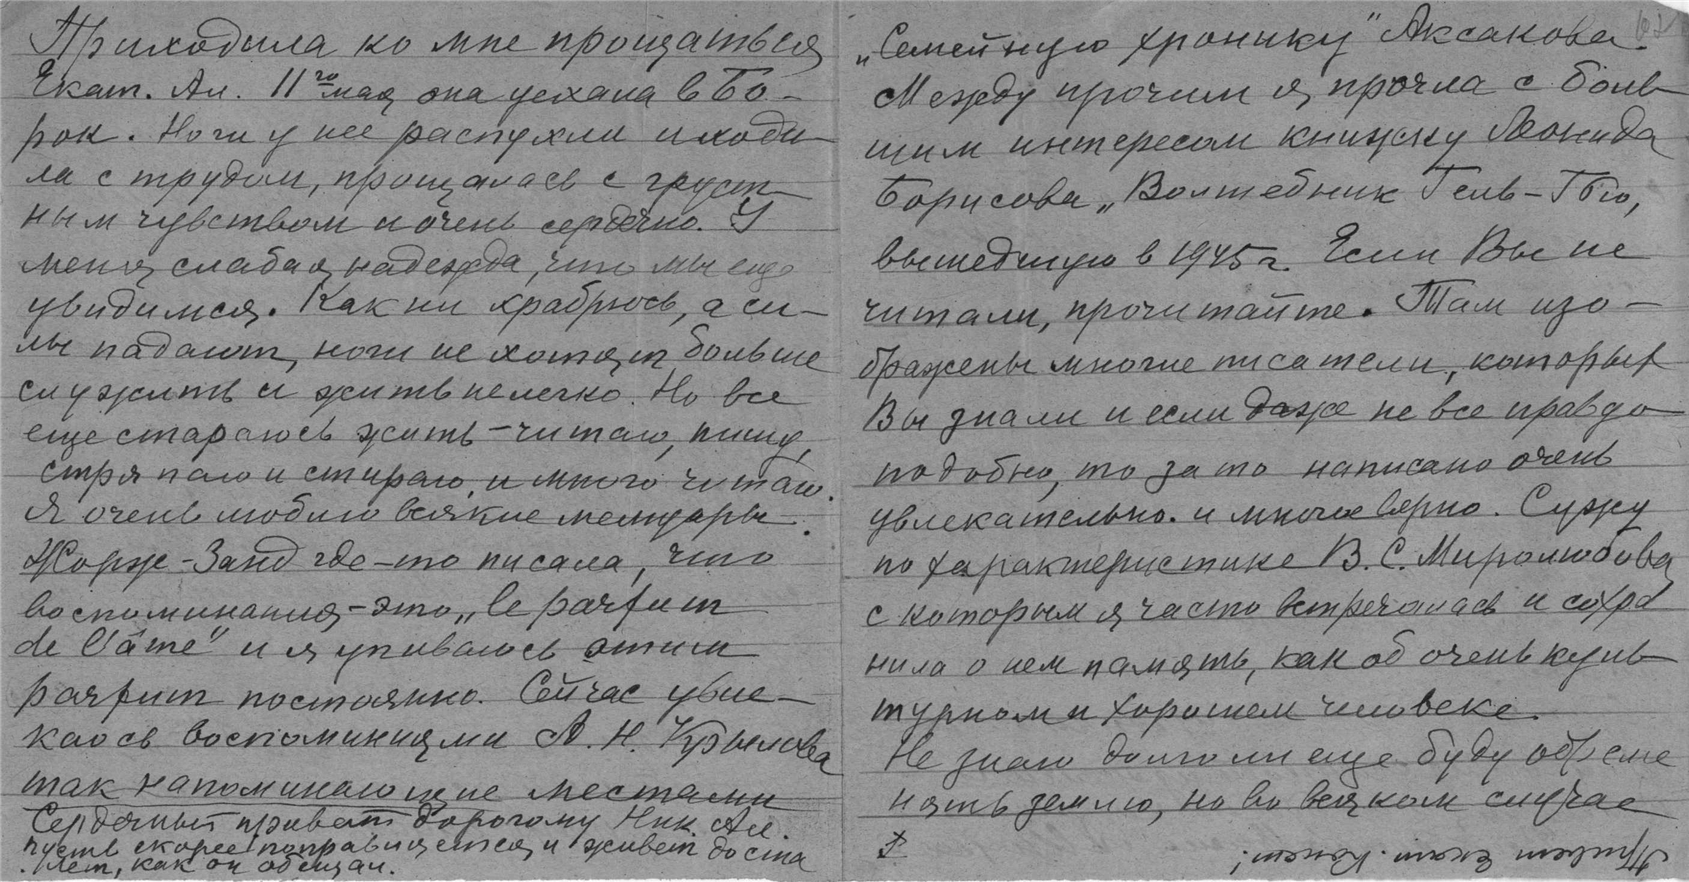 Приходила ко мне прощаться
Екат. Ал. 11го мая она уехала в Бо-
рок. Ноги у нее распухли и ходи
ла с трудом, прощалась с груст
ным чувством и очень сердечно. У
меня слабая надежда, что мы еще
увидимся. Как ни храбрюсь, а си-
лы падают, ноги не хотят больше
служить и жить нелегко. Но все
еще стараюсь жить – читаю, пишу,
стряпаю и стираю, и много читаю.
Я очень люблю всякие мемуары.
Жорж-Занд где-то писала, что
воспоминания – это „le parfum
de l'âme" и я упиваюсь этим
parfum постоянно. Сейчас увле-
каюсь воспоминиями А. Н. Крылова
так напоминающие местами
Сердечный привет дорогому Ник. Ал.
пусть скорее поправляется и живет до ста
лет, как он обещал.
„Семейную хронику" Аксакова.
Между прочим я прочла с боль
шим интересом книжку Леонида
Борисова „Волшебник Гель-Гью,
вышедшую в 1945 г. Если Вы не
читали, прочитайте. Там изо-
бражены многие писатели, которых
Вы знали и если даже не все правдо
подобно, то зато написано очень
увлекательно и многое верно. Сужу
по характеристике В. С. Миролюбова
с которым я часто встречалась и сохра
нила о нем память, как об очень куль
турном и хорошем человеке.
Не знаю долго ли еще буду обреме
нять землю, но во всяком случае
Привет Екат. Конст.